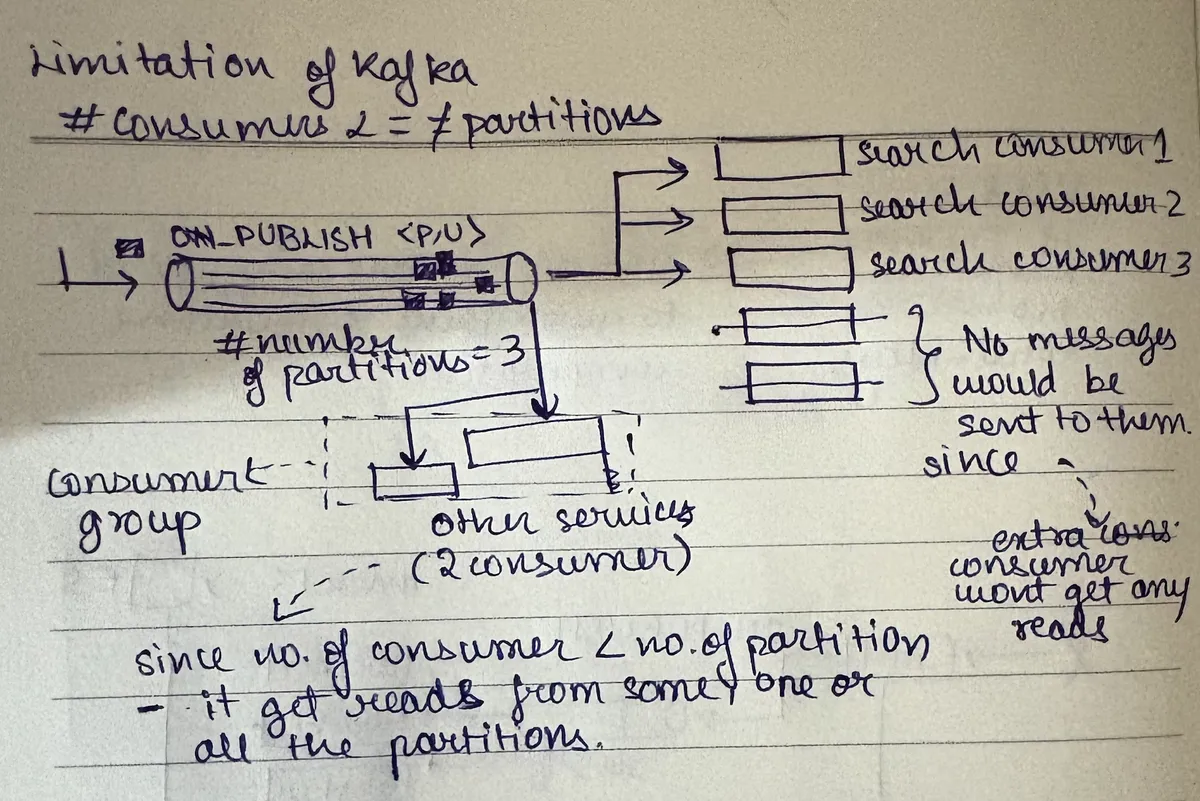 Limitation of Kafka
# consumers <= # partitions
search consumer 1
search consumer 2
ON_PUBLISH <P,U>
search consumer 3
#number
of partitions = 3
No messages
would be
sent to them.
since
extra cons.
consumer
wont get any
reads
consumer
group
other services
(2 consumer)
since no. of consumer < no. of partition
- it get reads from some, one or
all the partitions.